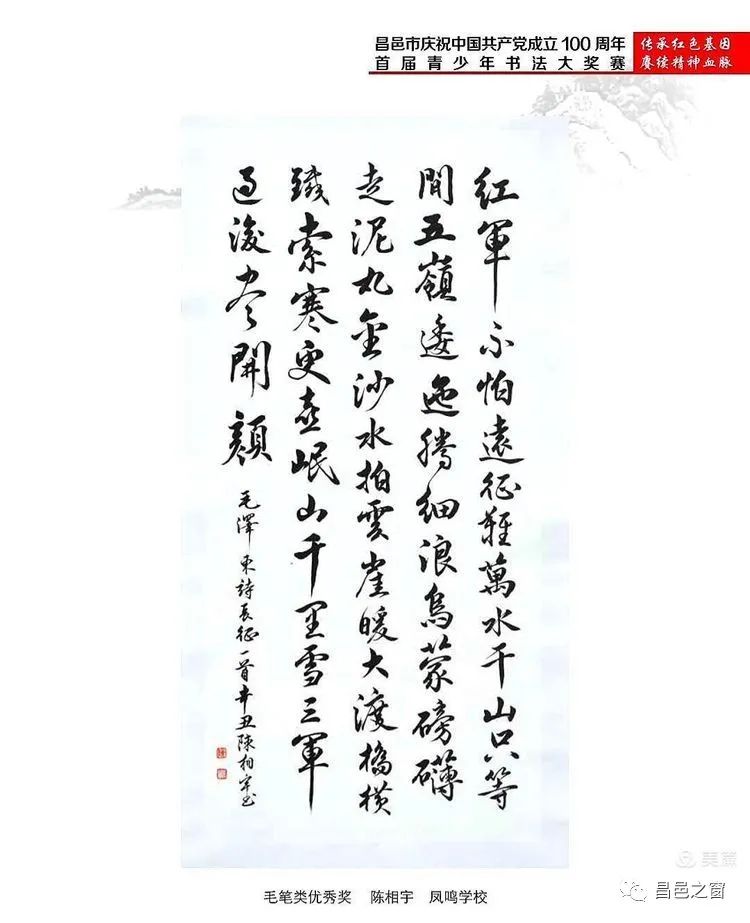 昌邑市庆祝中国共产党成立100周年
首届青少年书法大奖赛
传承红色基因
赓续精神血脉
紅軍不怕遠征難萬水千山只等
閒五嶺逶迤騰細浪烏蒙磅礴
走泥丸金沙水拍雲崖暖大渡橋横
鐵索寒更喜岷山千里雪三軍
過後尽開顔
毛澤東詩長征一首辛丑陳相宇书
美篇
毛笔类优秀奖 陈相宇 凤鸣学校
昌邑之窗